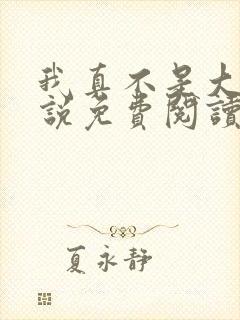 我真不是大
說免費閱讀
夏永靜